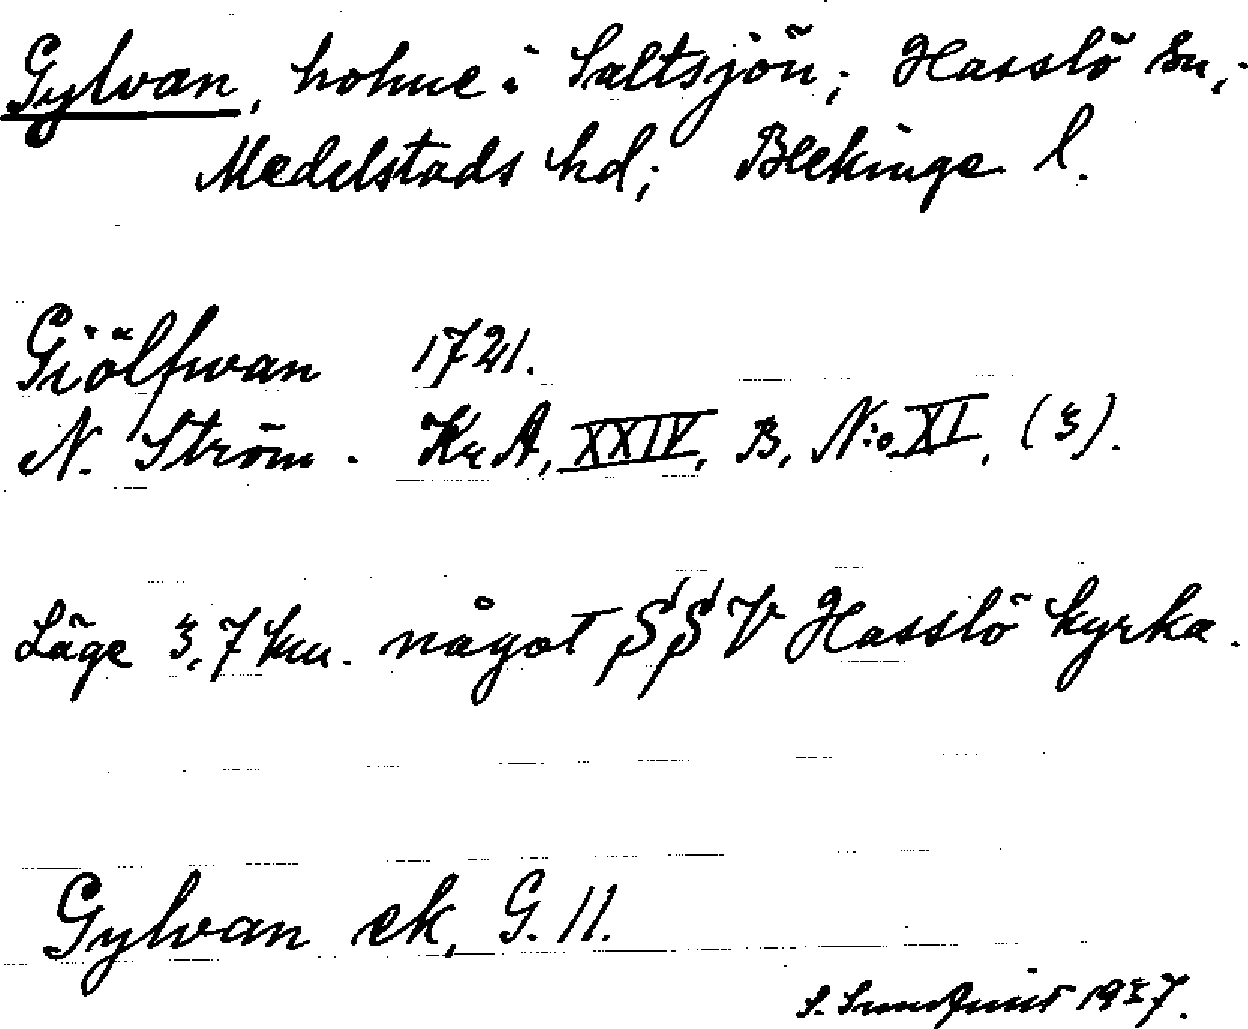 Gylvan, holme i Saltsjön; Hasslö sn,
Medelstads hd; Blekinge l.
Giölfwan 1721.
N. Ström. Kr.A, XXIV, B, N:o XI, (3).
Läge 3,7 km. något SSV Hasslö kyrka.
Gylvan ek, G. 11.
S. Sundquist 1937.